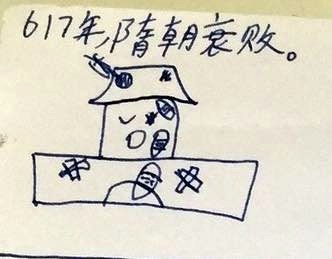 617年,隋朝衰败。